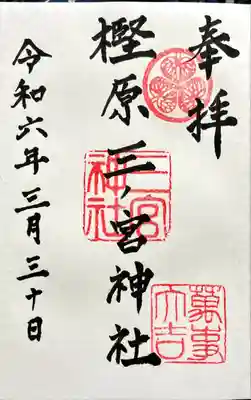 奉拝
樫原三ノ宮神社
三宮神社
萬事大吉
令和六年三月三十日